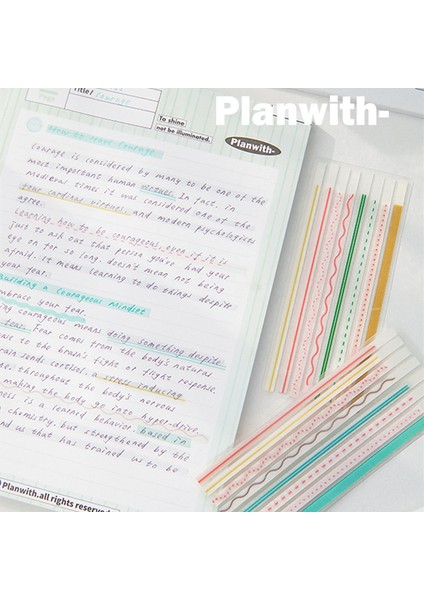 Planwith-
Title/ Courage
To shine
not be illuminated.
Planwith-
How to Have Courage
Courage is considered by many to be one of the
most important human virtues. In fact, in
medieval times it was considered one of the
four cardinal virtues, and modern psychologists
agree.
Learning how to be courageous, even if it is
just to ask out that person you've had your
eye on for so long, doesn't mean not being
afraid. It means learning to do things despite
your fear.
Building a Courageous Mindset
embrace your fear.
courageous means doing something despite
fear. Fear comes from the body's natural
to the brain's fight or flight response.
brain sends cortisol, a stress-inducing
throughout the body's nervous
making the body go into hyper-drive.
is a learned behavior, based in
chemistry, but strengthened by the
us that has trained us to be
Planwith.all rights reserved